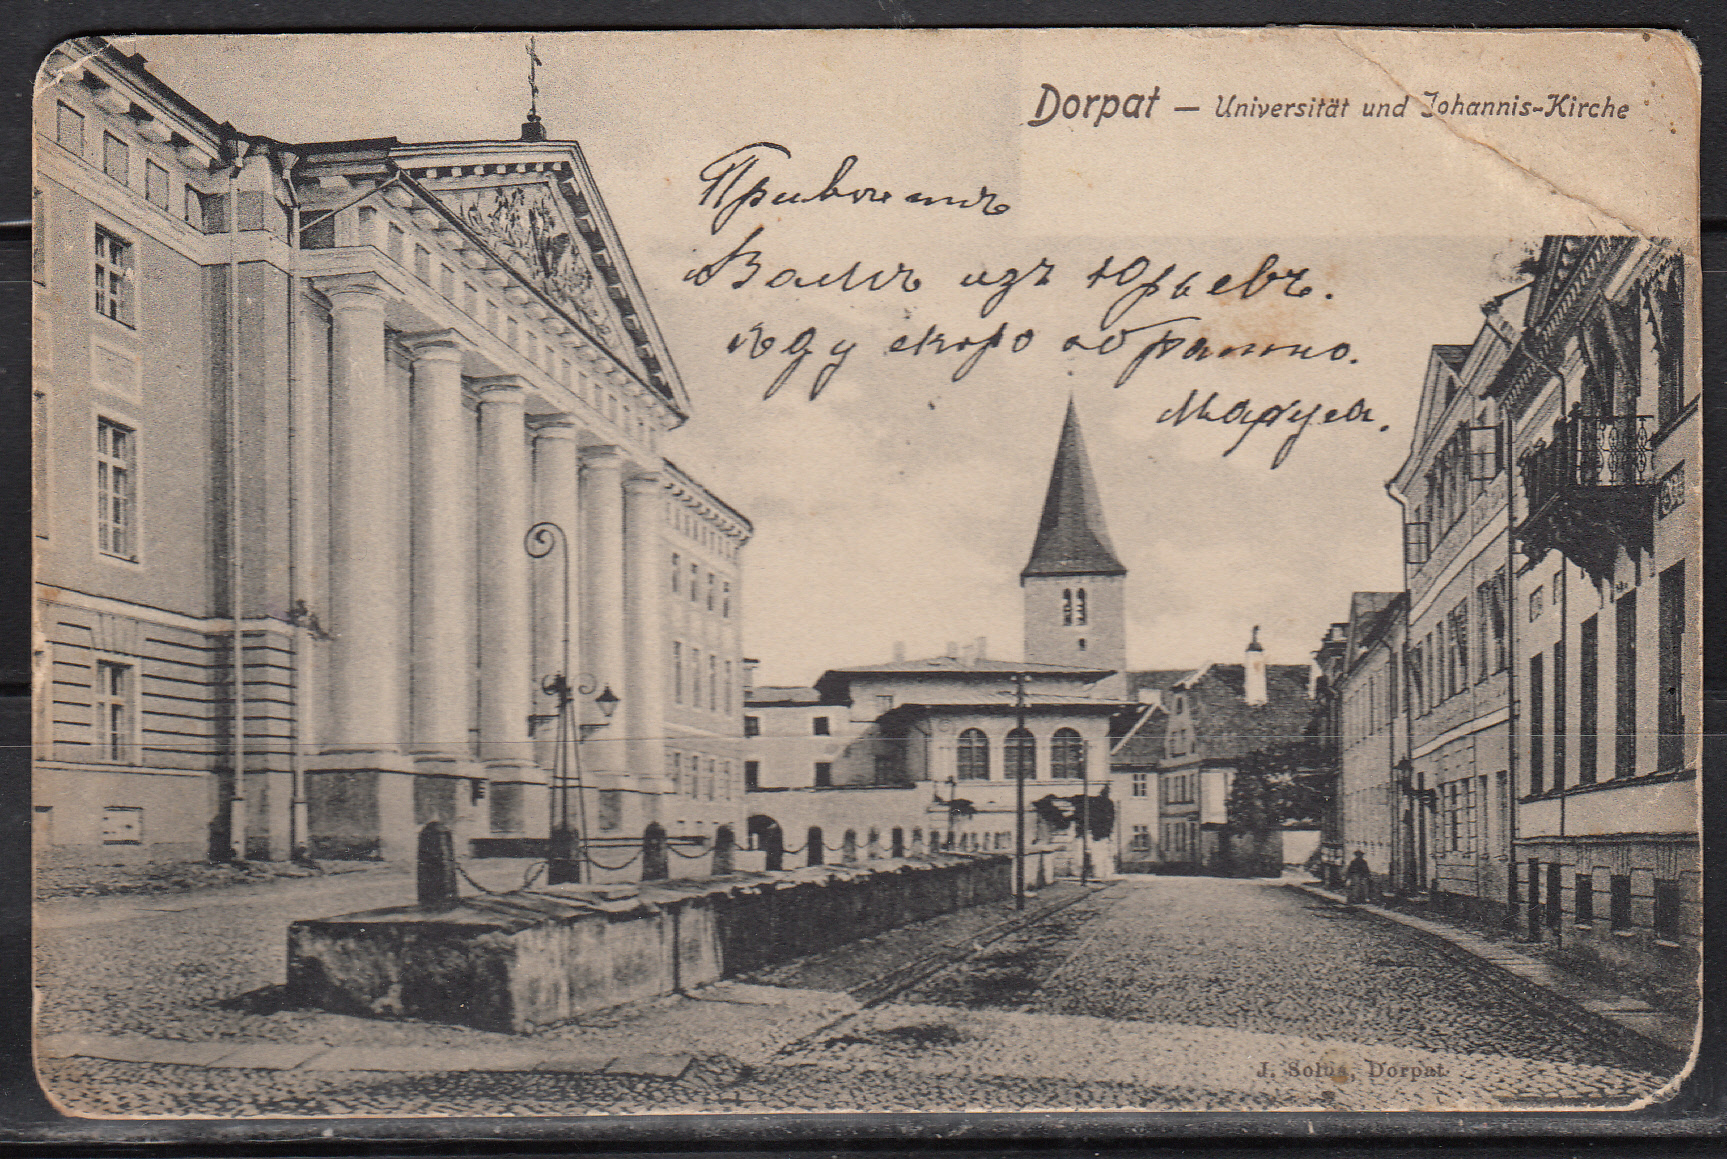 Dorpat – Universität und Johannis-Kirche
Приветъ
Вамъ изъ Юрьевъ.
ѣду скоро обратно.
Маруся.
J. Solba, Dorpat